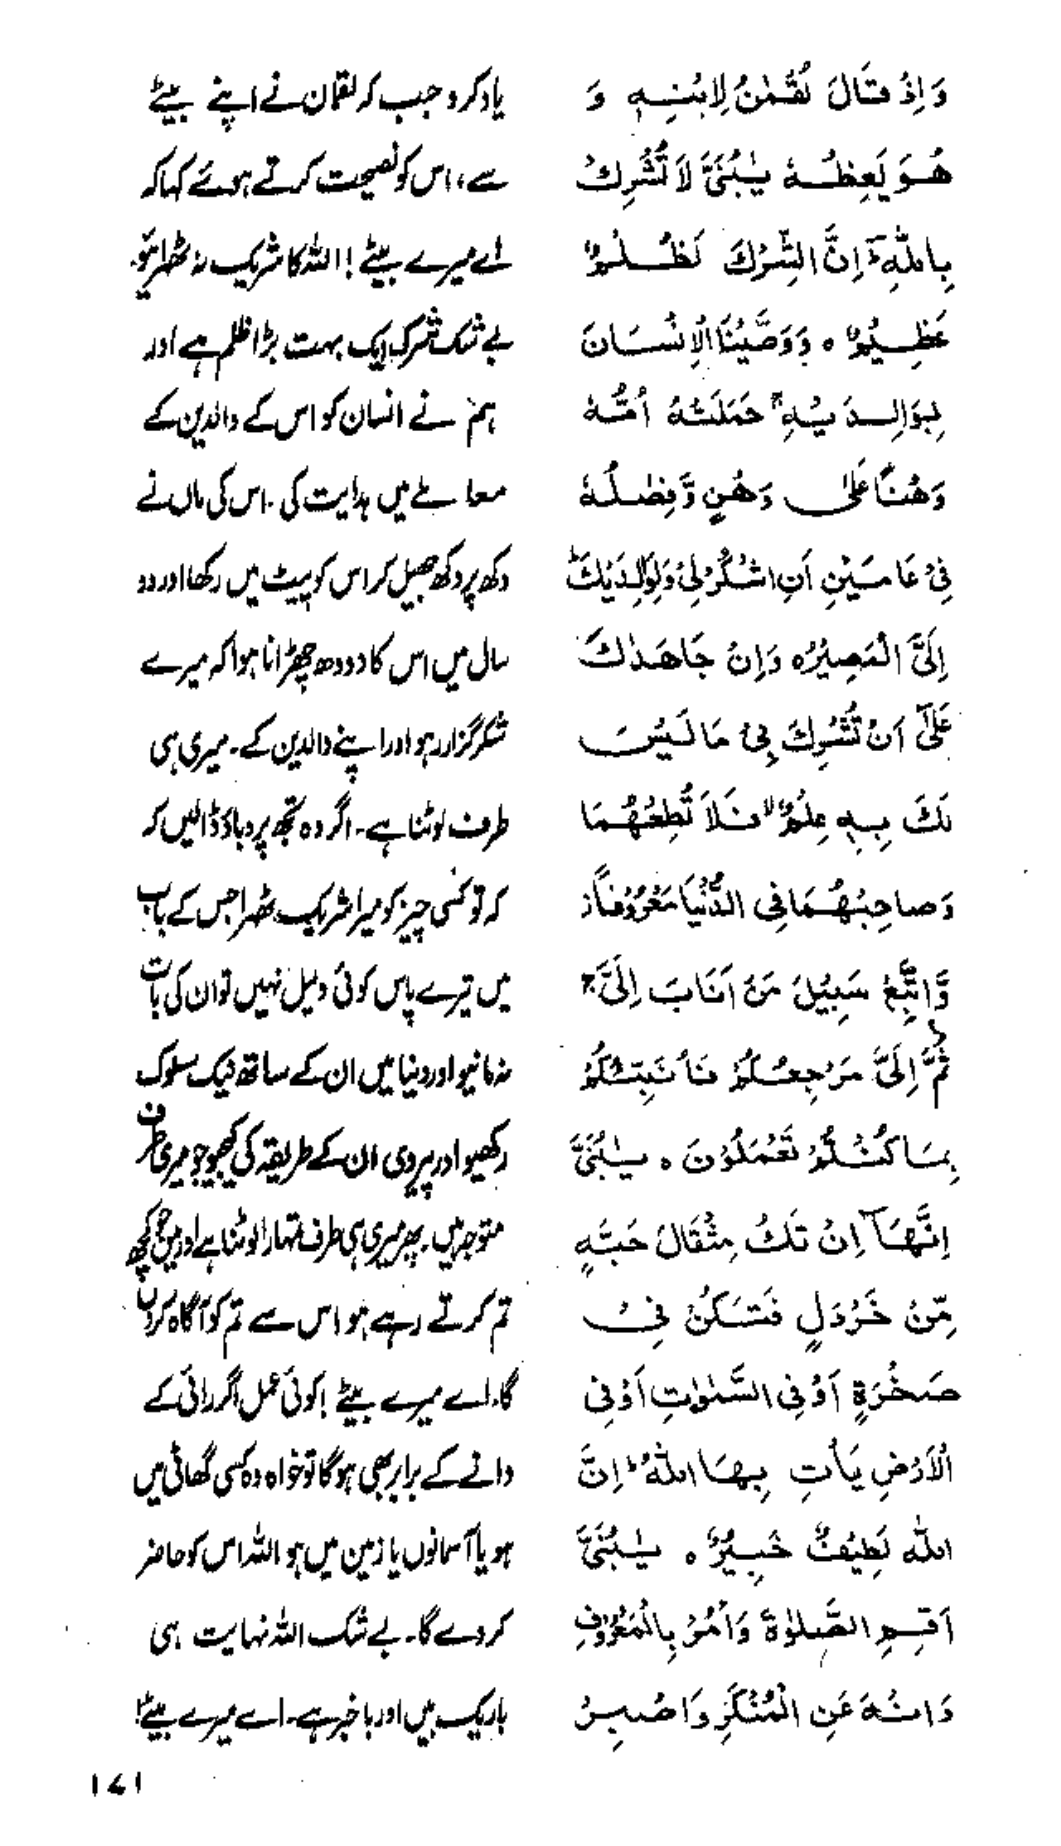 وَاِذْ قَالَ لُقْمٰنُ لِابْنِهٖ وَ
هُوَ يَعِظُهٗ يٰبُنَيَّ لَا تُشْرِكْ
بِاللّٰهِ ؕ اِنَّ الشِّرْكَ لَظُلْمٌ
عَظِيْمٌ ه وَوَصَّيْنَا الْاِنْسَانَ
بِوَالِدَيْهِ ۚ حَمَلَتْهُ اُمُّهٗ
وَهْنًا عَلٰى وَهْنٍ وَّفِصٰلُهٗ
فِيْ عَامَيْنِ اَنِ اشْكُرْ لِيْ وَلِوَالِدَيْكَ ؕ
اِلَيَّ الْمَصِيْرُ ه وَاِنْ جَاهَدٰكَ
عَلٰٓى اَنْ تُشْرِكَ بِيْ مَا لَيْسَ
لَكَ بِهٖ عِلْمٌ ۙ فَلَا تُطِعْهُمَا
وَصَاحِبْهُمَا فِي الدُّنْيَا مَعْرُوْفًا ز
وَّاتَّبِعْ سَبِيْلَ مَنْ اَنَابَ اِلَيَّ ۚ
ثُمَّ اِلَيَّ مَرْجِعُكُمْ فَاُنَبِّئُكُمْ
بِمَا كُنْتُمْ تَعْمَلُوْنَ ه يٰبُنَيَّ
اِنَّهَآ اِنْ تَكُ مِثْقَالَ حَبَّةٍ
مِّنْ خَرْدَلٍ فَتَكُنْ فِيْ
صَخْرَةٍ اَوْ فِي السَّمٰوٰتِ اَوْ فِي
الْاَرْضِ يَأْتِ بِهَا اللّٰهُ ؕ اِنَّ
اللّٰهَ لَطِيْفٌ خَبِيْرٌ ه يٰبُنَيَّ
اَقِمِ الصَّلٰوةَ وَأْمُرْ بِالْمَعْرُوْفِ
وَانْهَ عَنِ الْمُنْكَرِ وَاصْبِرْ
یاد کرو جب کہ لقمان نے اپنے بیٹے
سے، اس کو نصیحت کرتے ہوئے کہا کہ
اے میرے بیٹے! اللہ کا شریک نہ ٹھہرائیو۔
بے شک شرک ایک بہت بڑا ظلم ہے اور
ہم نے انسان کو اس کے والدین کے
معاملے میں ہدایت کی۔ اس کی ماں نے
دکھ پر دکھ جھیل کر اس کو پیٹ میں رکھا اور دو
سال میں اس کا دودھ چھڑانا ہوا کہ میرے
شکر گزار رہو اور اپنے والدین کے۔ میری ہی
طرف لوٹنا ہے۔ اگر وہ تجھ پر دباؤ ڈالیں کہ
کہ تو کسی چیز کو میرا شریک ٹھہرا جس کے باب
میں تیرے پاس کوئی دلیل نہیں تو ان کی بات
نہ مانیو اور دنیا میں ان کے ساتھ نیک سلوک
رکھیو اور پیروی ان کے طریقہ کی کیجیو جو میری طرف
متوجہ ہیں۔ پھر میری ہی طرف تمہارا لوٹنا ہے اور میں جو کچھ
تم کرتے رہے ہو اس سے تم کو آگاہ کروں
گا۔ اے میرے بیٹے! کوئی عمل اگر رائی کے
دانے کے برابر بھی ہوگا تو خواہ وہ کسی گھاٹی میں
ہو یا آسمانوں یا زمین میں ہو اللہ اس کو حاضر
کر دے گا۔ بے شک اللہ نہایت ہی
باریک بیں اور باخبر ہے۔ اے میرے بیٹے!
۱۷۱